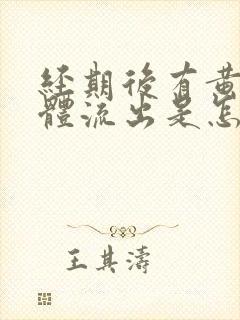 經期後有黄
體流出是怎
王其濤